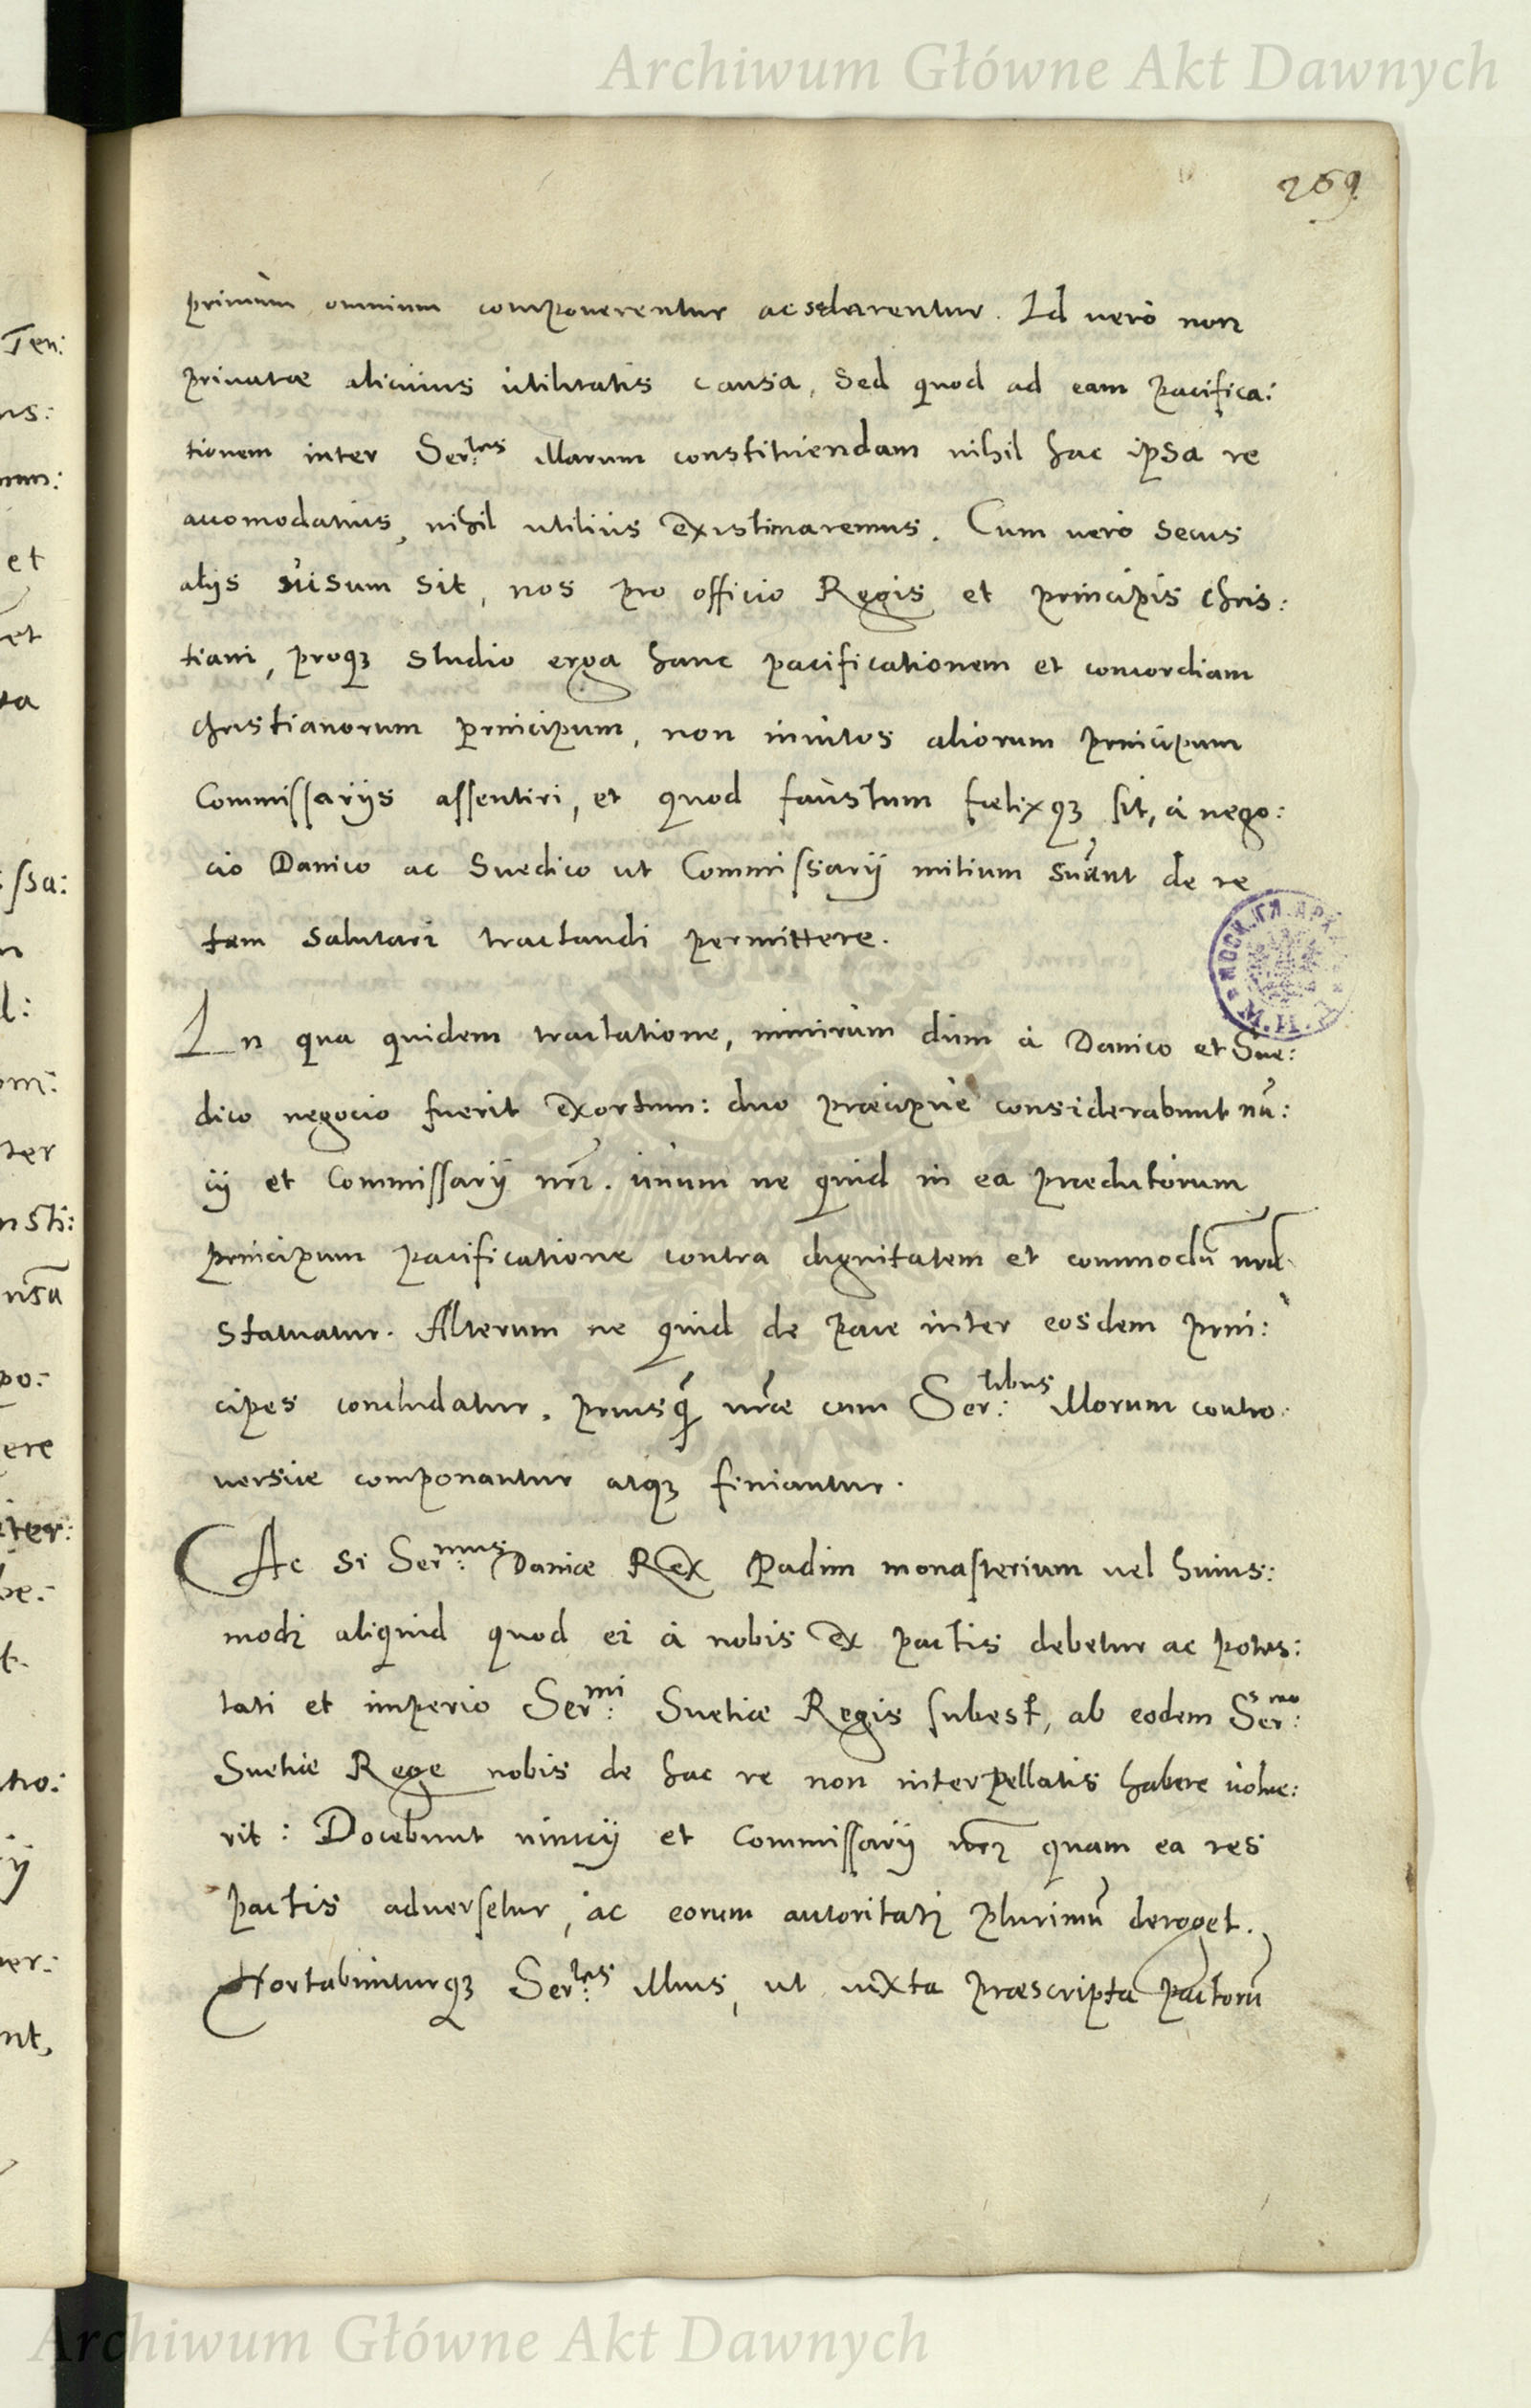 Archiwum Główne Akt Dawnych
269
primùm omnium componerentur ac sedarentur. Id uerò non
priuatæ alicuius utilitatis causa, sed quod ad eam pacifica:
tionem inter Ser:tes illarum constituendam nihil hac ipsa re
accomodatius, nihil utilius existimaremus. Cum uerò secus
alijs uisum sit, nos pro officio Regis et principis Chris:
tiani, proq3 studio erga hanc pacificationem et concordiam
Christianorum principum, non inuitos aliorum principum
Commissarijs assentiri, et quod faustum fœlixq3 sit, à nego:
cio Danico ac Suedico ut Commissarij initium de re
tam salutari tractandi permittere.
In qua quidem tractatione, nimirum dum à Danico et Sue:
dico negocio fuerit exortum: duo præcipuè considerabunt nū:
cij et Commissarij nrī. unum ne quid in ea prædictorum
principum pacificatione contra dignitatem et commodū nrū
statuatur. Alterum ne quid de pace inter eosdem prin:
cipes concludatur, priusq̃ nræ cum Ser:tibus illorum contro:
uersiæ componantur atq3 finiantur.
Ac si Ser:mus Daniæ Rex Padim monasterium uel huius:
modi aliquid quod ei à nobis ex pactis debetur ac potes:
tati et imperio Ser:mi Suetiæ Regis subest, ab eodem Ser:mo
Suetiæ Rege nobis de hac re non interpellatis habere uolue:
rit: Docebunt nuncij et Commissarij nrī quam ea res
pactis aduersetur, ac eorum autoritati plurimū deroget.
Hortabunturq3 Ser:tes illius, ut iuxta præscripta pactorū
Archiwum Główne Akt Dawnych